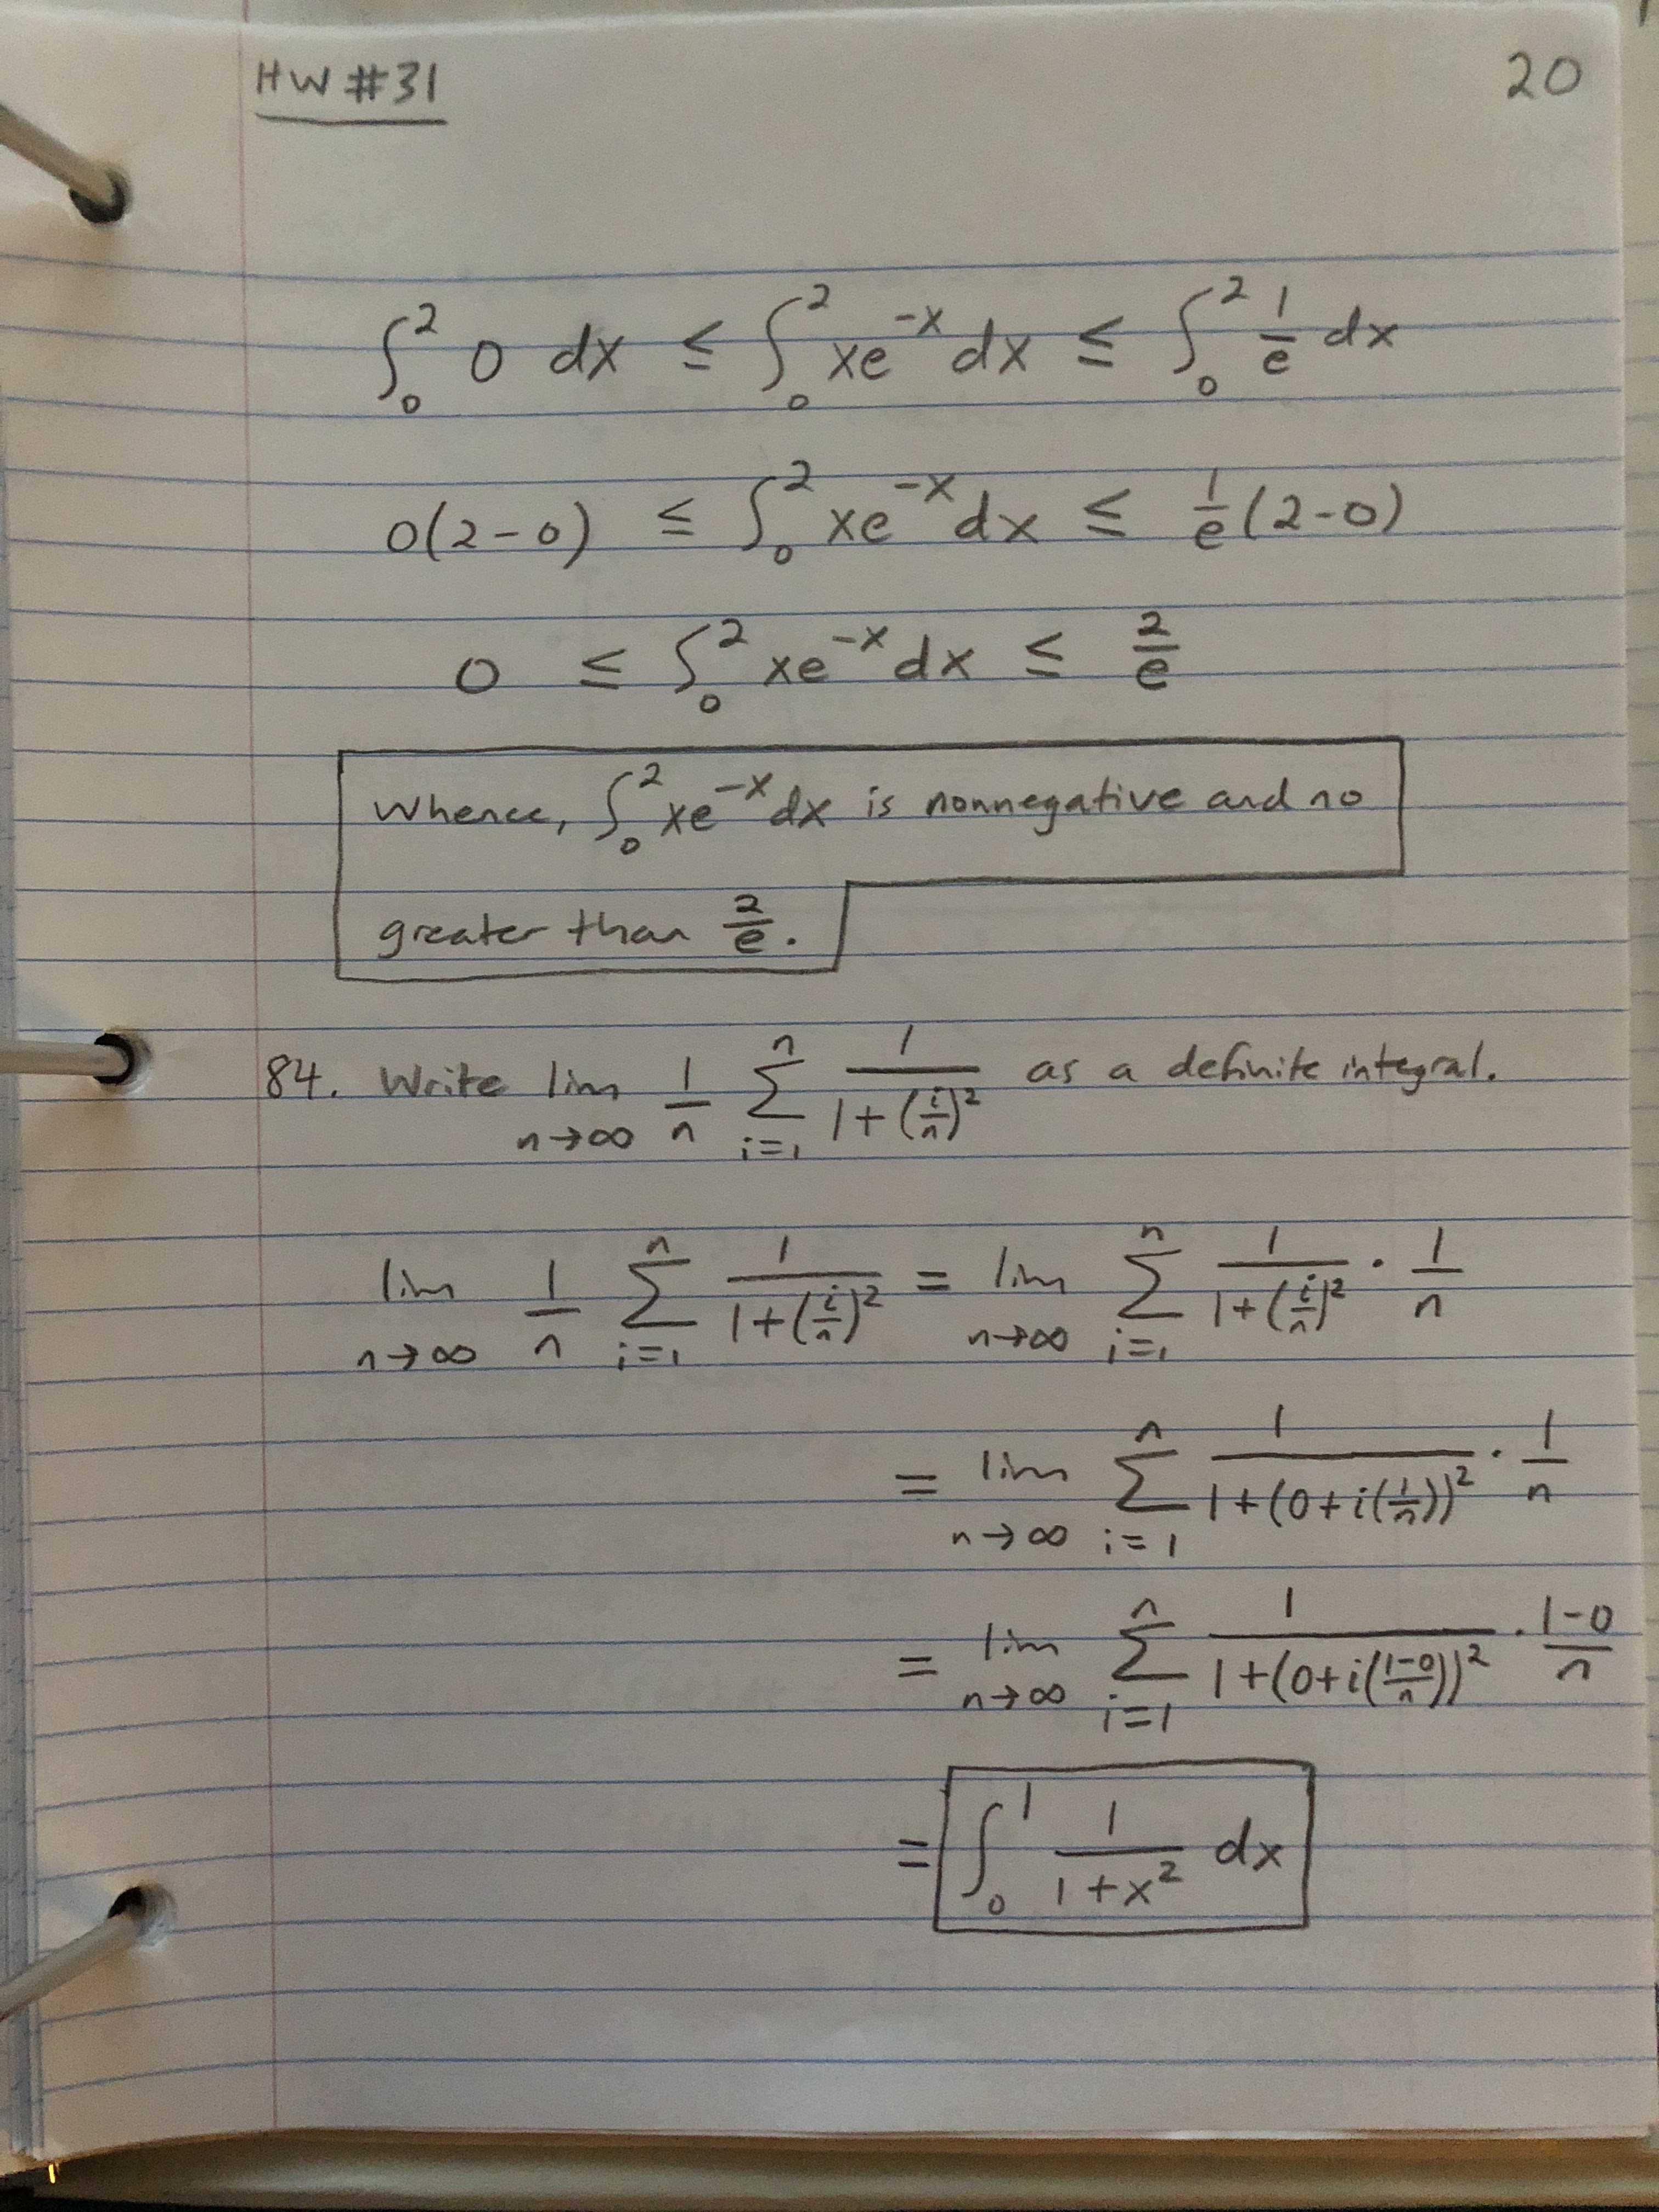 HW #31 20
∫₀² 0 dx ≤ ∫₀² xe^{-x} dx ≤ ∫₀² 1/e dx
0(2-0) ≤ ∫₀² xe^{-x} dx ≤ 1/e (2-0)
0 ≤ ∫₀² xe^{-x} dx ≤ 2/e
Whence, ∫₀² xe^{-x} dx is nonnegative and no
greater than 2/e.
84. Write lim_{n→∞} 1/n ∑_{i=1}^{n} 1/(1+(i/n)²) as a definite integral.
lim_{n→∞} 1/n ∑_{i=1}^{n} 1/(1+(i/n)²) = lim_{n→∞} ∑_{i=1}^{n} 1/(1+(i/n)²) · 1/n
= lim_{n→∞} ∑_{i=1}^{n} 1/(1+(0+i(1/n))²) · 1/n
= lim_{n→∞} ∑_{i=1}^{n} 1/(1+(0+i((1-0)/n))²) · (1-0)/n
= ∫₀¹ 1/(1+x²) dx